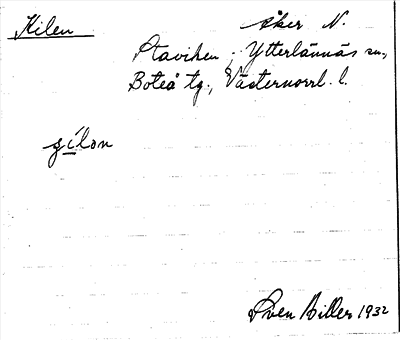 Kilen
Åker N.
Staviken, Ytterlännäs sn.,
Boteå tg., Västernorrl. l.
Sven Biller 1932